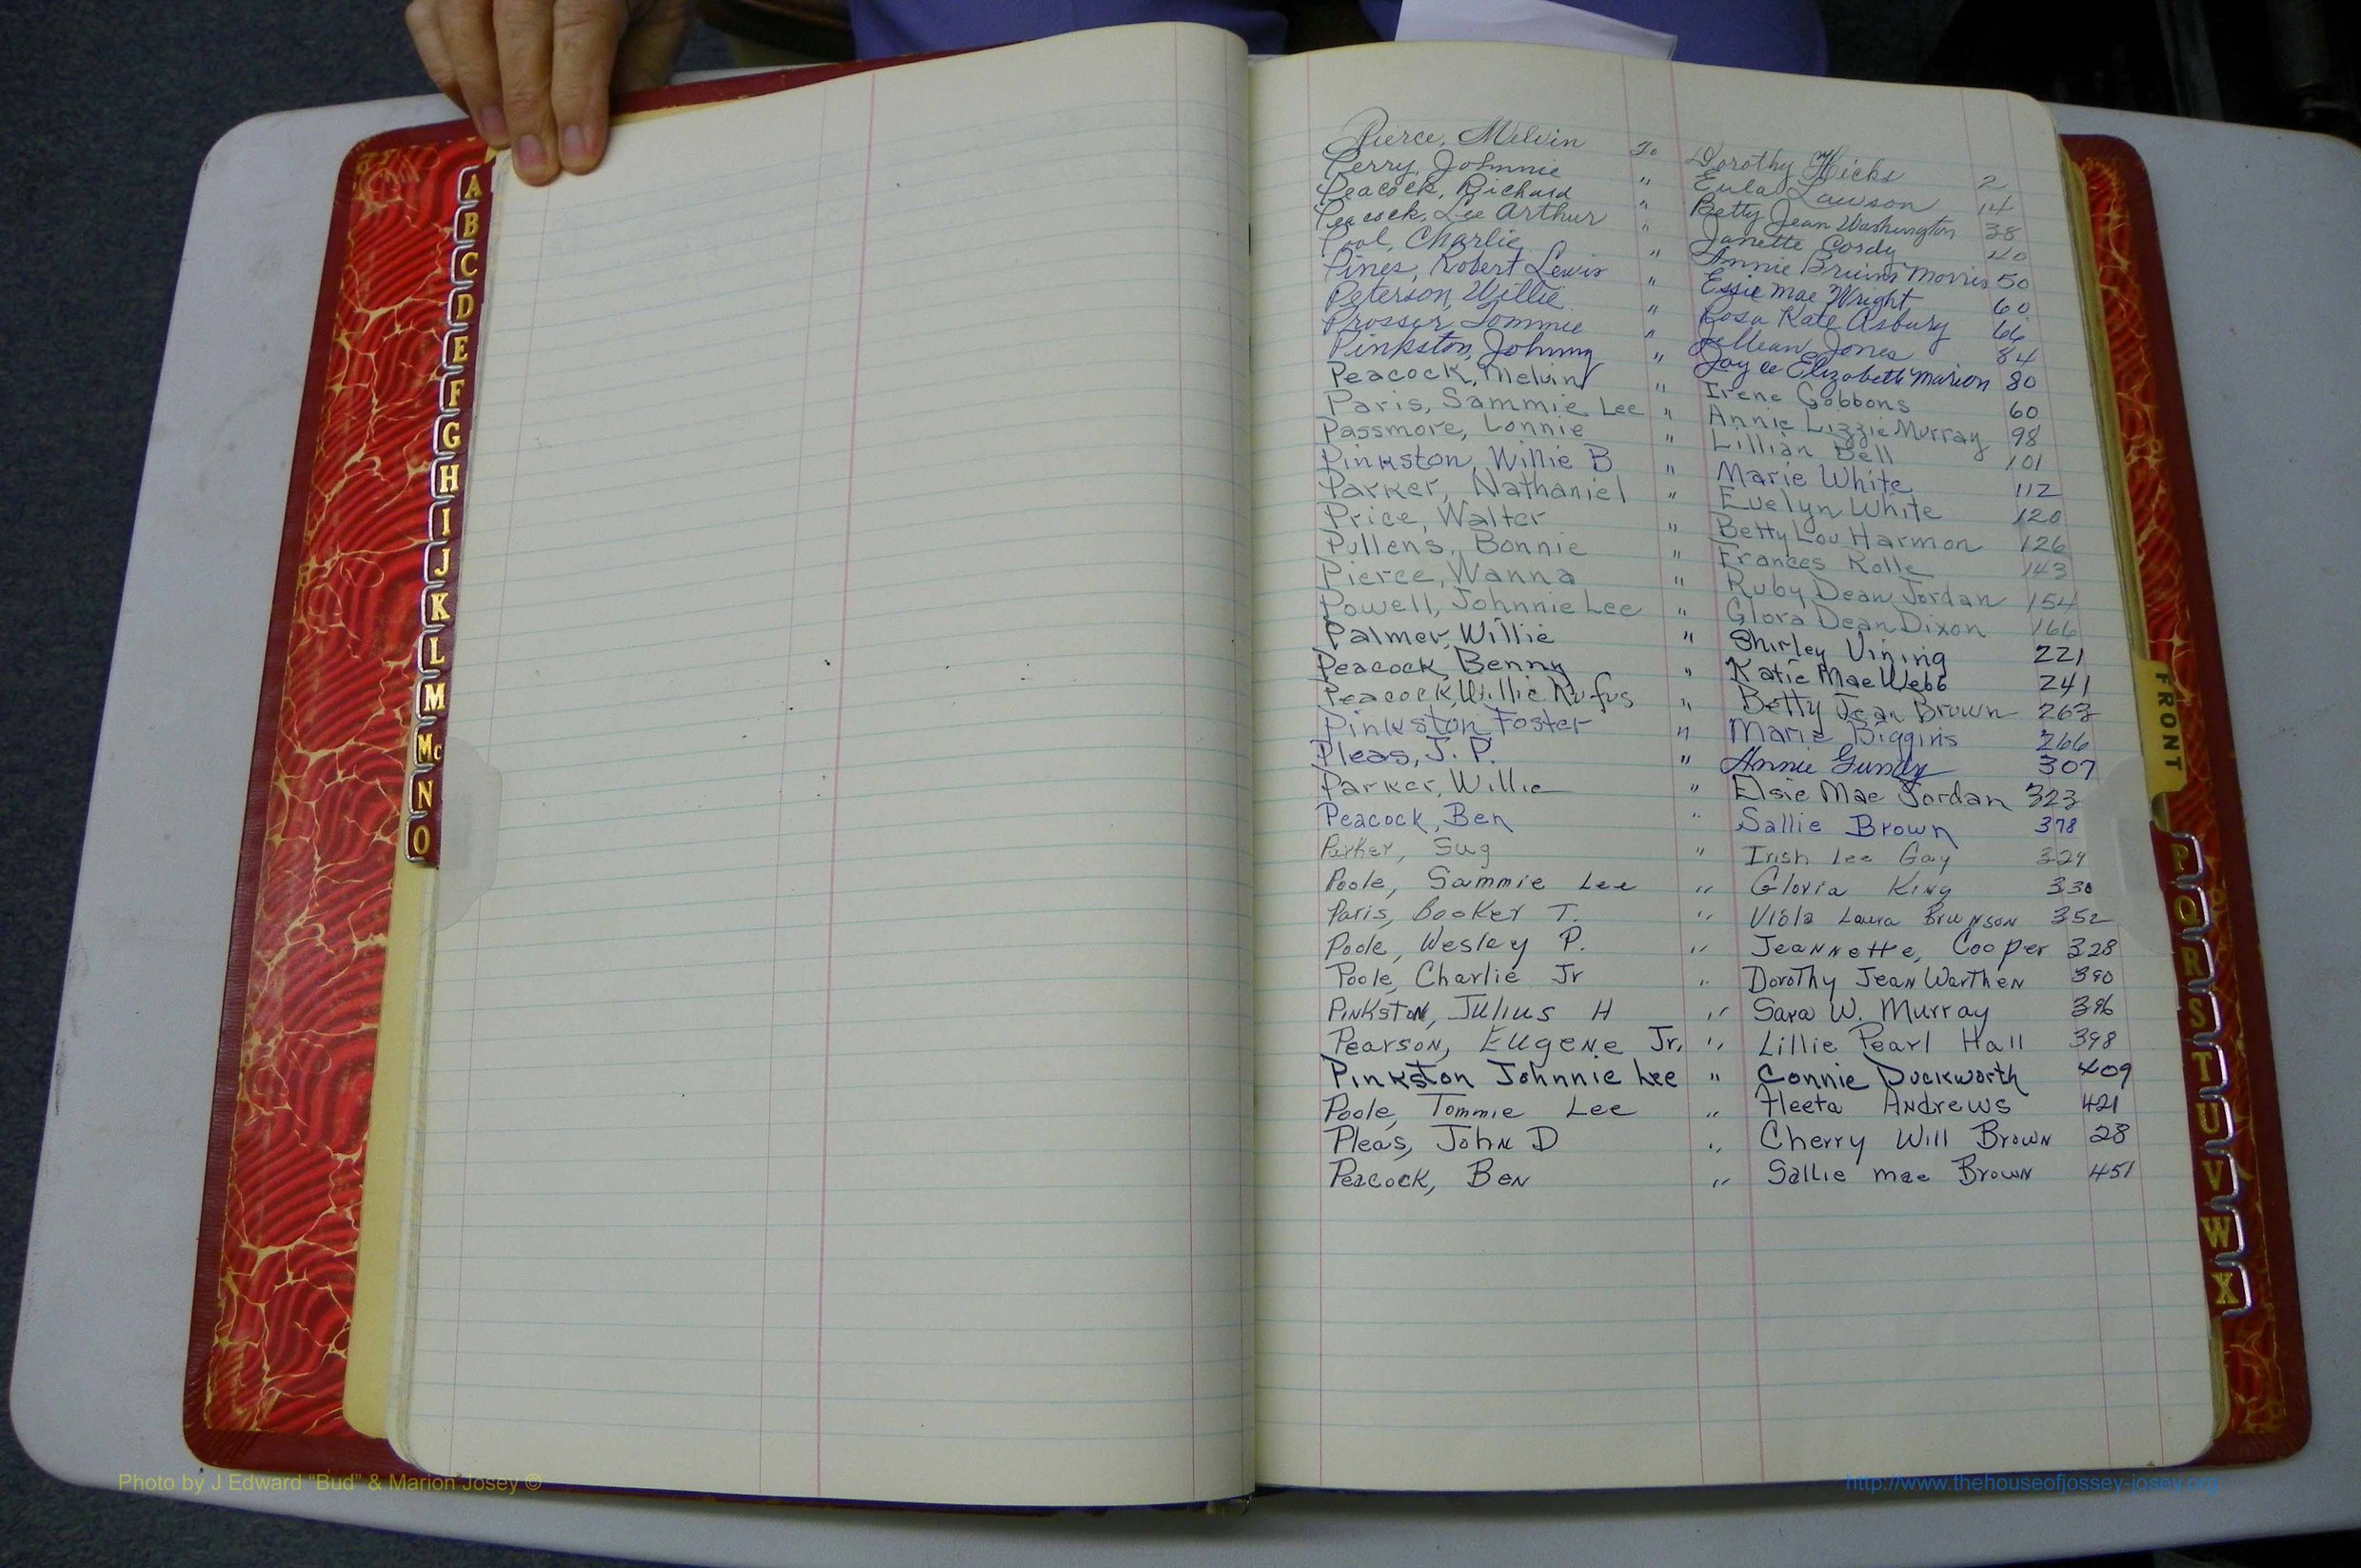 A
B
C
D
E
F
G
H
I
J
K
L
M
Mc
N
O
Pierce, Melvin To Dorothy Hicks 2
Perry, Johnnie " Eula Lawson 14
Peacock, Richard " Betty Jean Washington 38
Peacock, Lee Arthur " Janette Cordy 40
Pool, Charlie " Annie Morris 50
Pines, Robert Lewis " Essie Mae Wright 60
Peterson, Willie " Rosa Kate Asbury 66
Prosser, Tommie " Jones 84
Pinkston, Johnny " Joyce Elizabeth Marion 80
Peacock, Melvin " Irene Gobbons 60
Paris, Sammie Lee " Annie Lizzie Murray 98
Passmore, Lonnie " Lillian Bell 101
Pinkston, Willie B " Marie White 112
Parker, Nathaniel " Evelyn White 120
Price, Walter " Betty Lou Harmon 126
Pullens, Bonnie " Frances Rolle 143
Pierce, Wanna " Ruby Dean Jordan 154
Powell, Johnnie Lee " Glora Dean Dixon 166
Palmer, Willie " Shirley Vining 221
Peacock, Benny " Katie Mae Webb 241
Peacock, Willie Rufus " Betty Jean Brown 263
Pinkston Foster " Marie Biggins 266
Pleas, J. P. " Annie Gundy 307
Parker, Willie " Elsie Mae Jordan 323
Peacock, Ben " Sallie Brown 378
Parker, Sug " Irish Lee Gay 329
Poole, Sammie Lee " Gloria King 330
Paris, Booker T. " Viola Laura Brunson 352
Poole, Wesley P. " Jeannette, Cooper 328
Poole, Charlie Jr " Dorothy Jean Warthen 390
Pinkston, Julius H " Sara W. Murray 396
Pearson, Eugene Jr. " Lillie Pearl Hall 398
Pinkston Johnnie Lee " Connie Duckworth 409
Poole, Tommie Lee " Fleeta Andrews 421
Pleas, John D " Cherry Will Brown 28
Peacock, Ben " Sallie mae Brown 451
FRONT
P
Q
R
S
T
U
V
W
X
Photo by J Edward "Bud" & Marion Josey ©
http://www.thehouseofjossey-josey.org